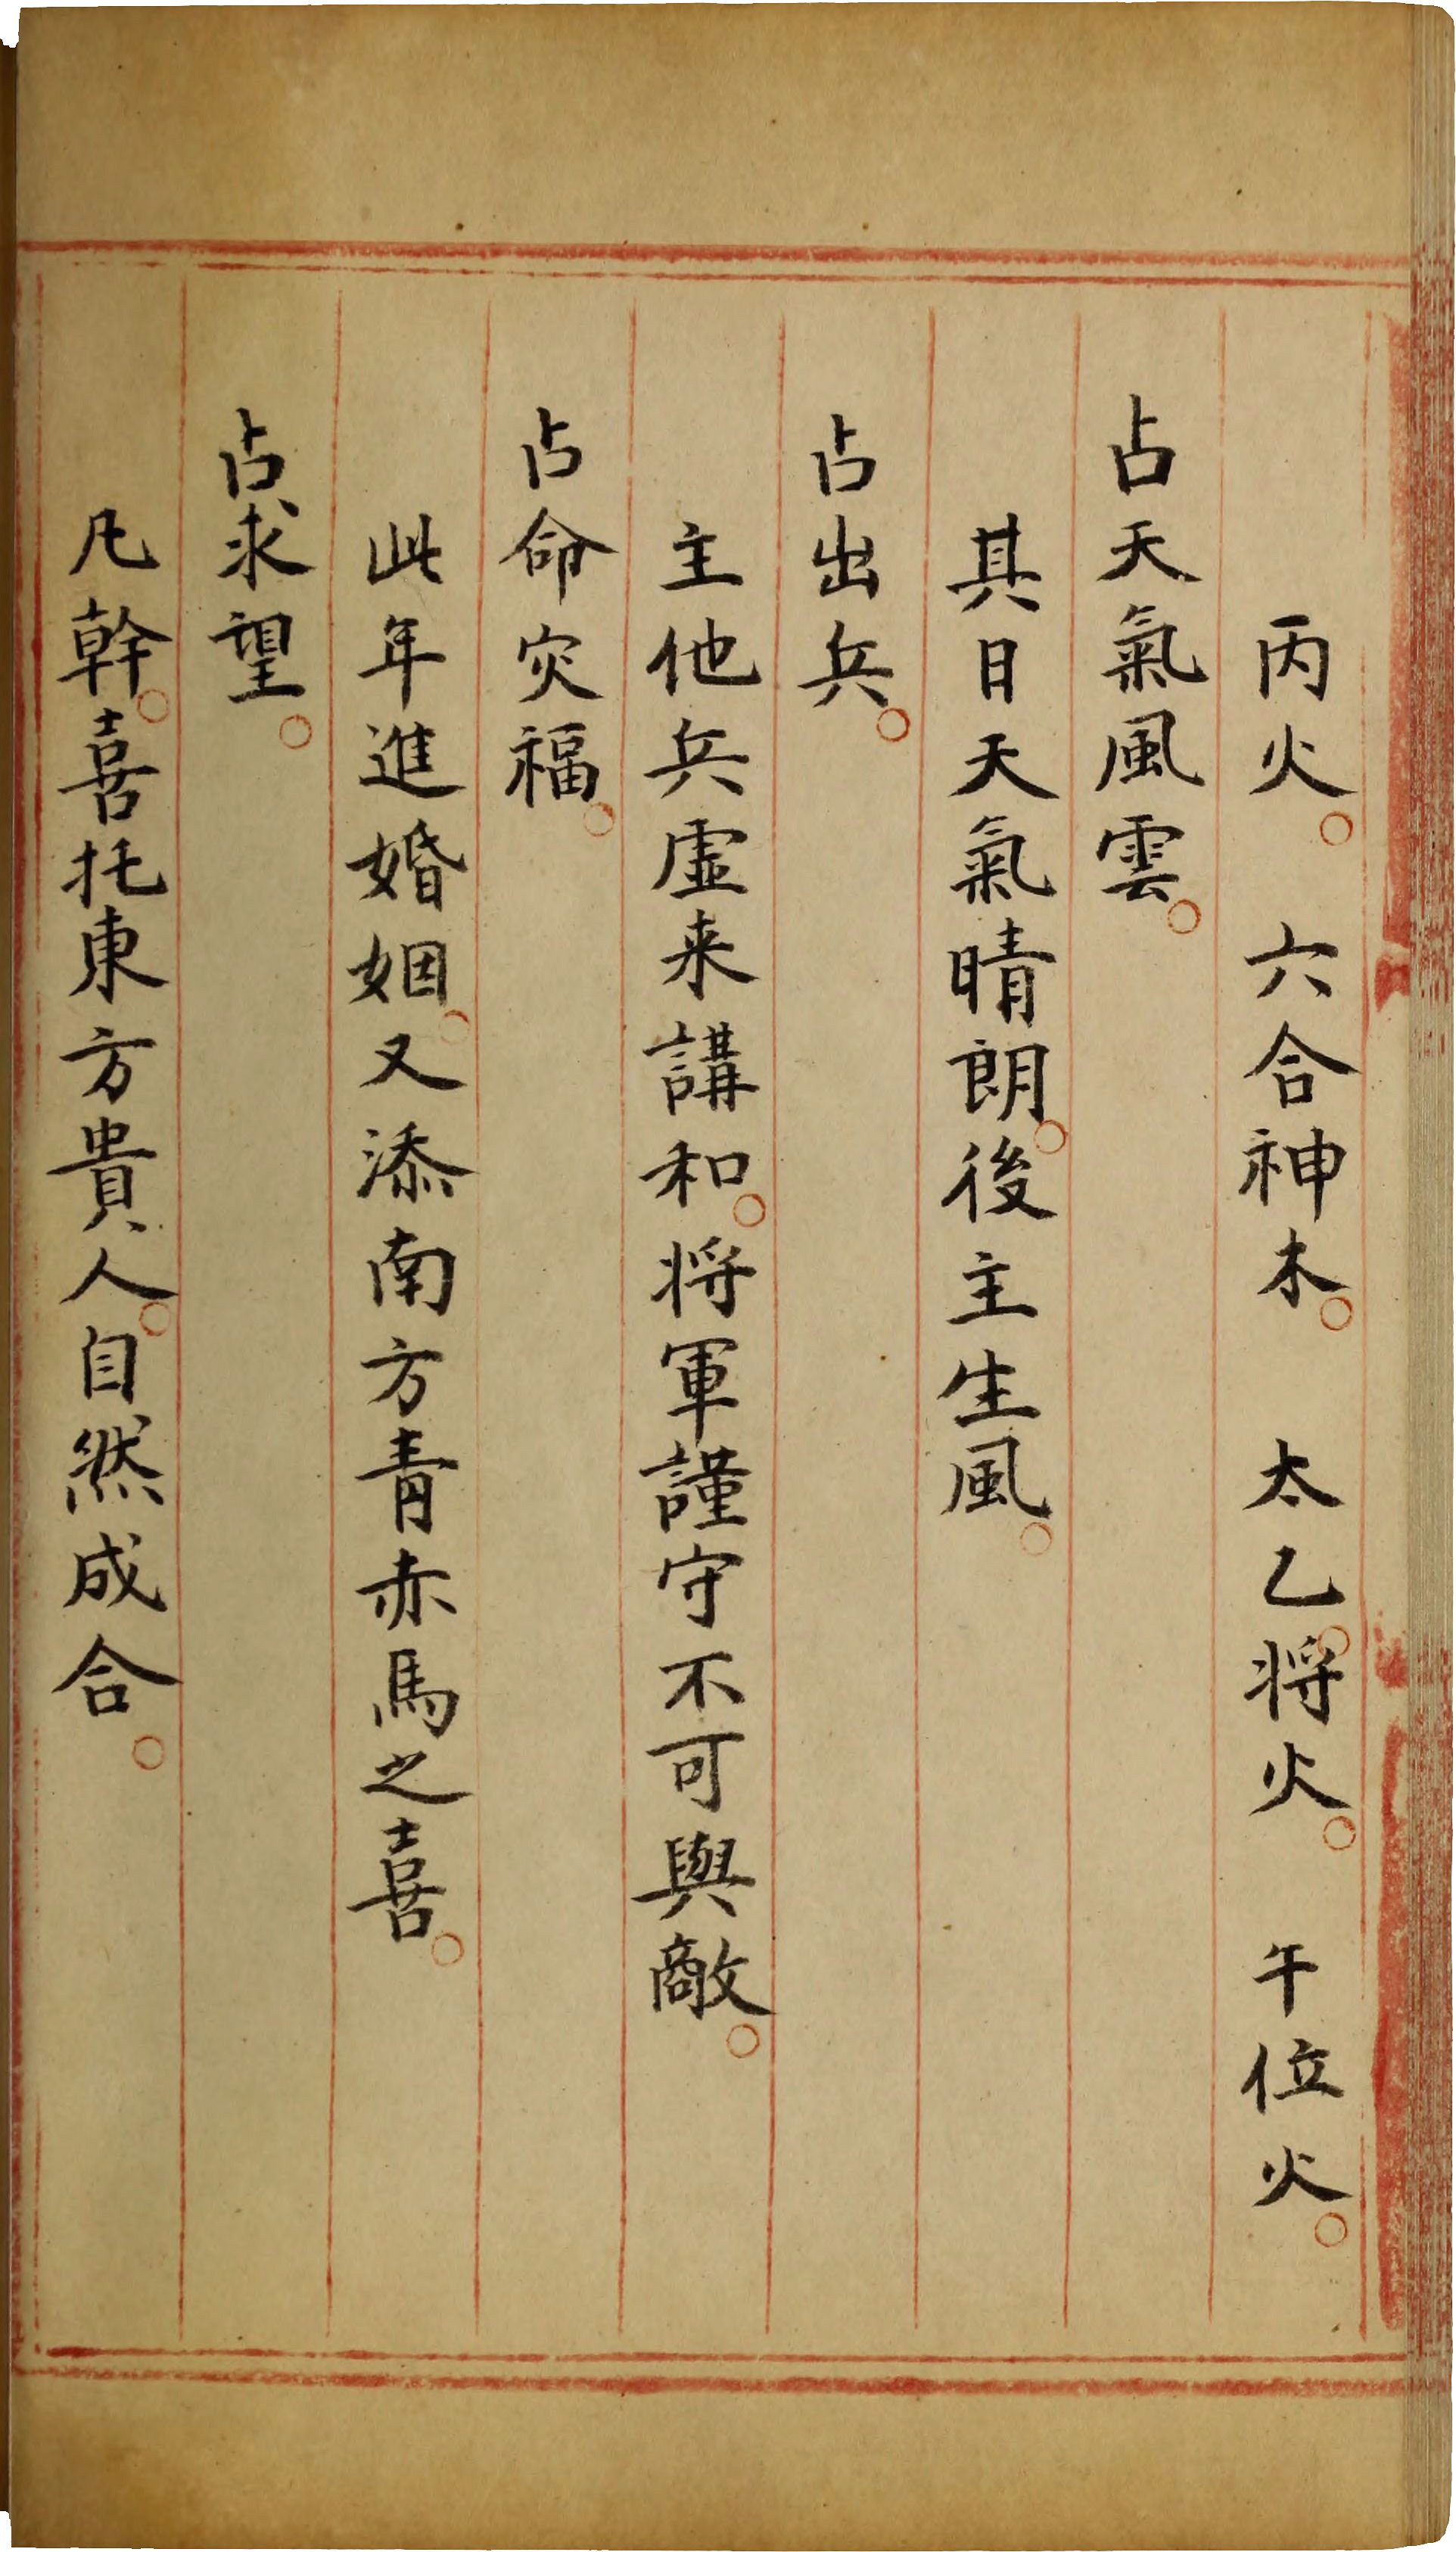 丙火。　六合神木。　太乙。将火。　午位火。
占天氣風雲。
其日天氣晴朗。後主生風。
占出兵。
主他兵虛来講和。将軍謹守不可與敵。
占命灾福。
此年進婚姻。又添南方青赤馬之喜。
占求望。
凡幹。喜托東方貴人。自然成合。